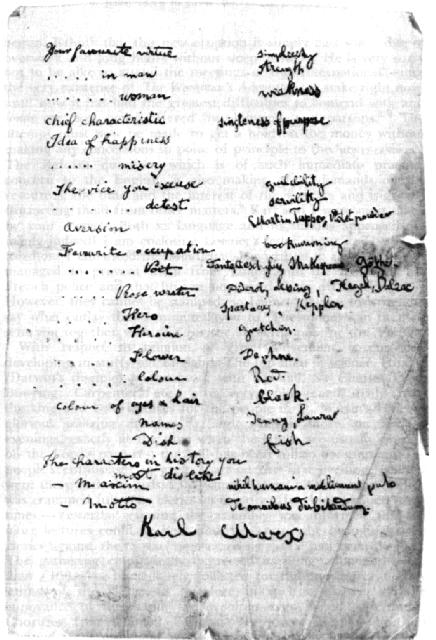 Your favourite virtue simplicity
..... in man strength
..... woman weakness
chief characteristic singleness of purpose
Idea of happiness
The ..... misery
The vice you excuse gullibility
detest servility
Aversion Martin Tupper,
Favourite occupation bookworming
........ Poet Shakespeare, Göthe.
..... Prose writer Diderot, Lessing, Hegel, Balzac
..... Hero Spartacus, Keppler
..... Heroine Gretchen.
..... Flower Daphne.
..... colour Red.
colour of eyes & hair black.
names Jenny, Laura
Dish fish
The characters in history you
most dislike
- Maxim nihil humani a me alienum puto
- Motto De omnibus dubitandum.
Karl Marx